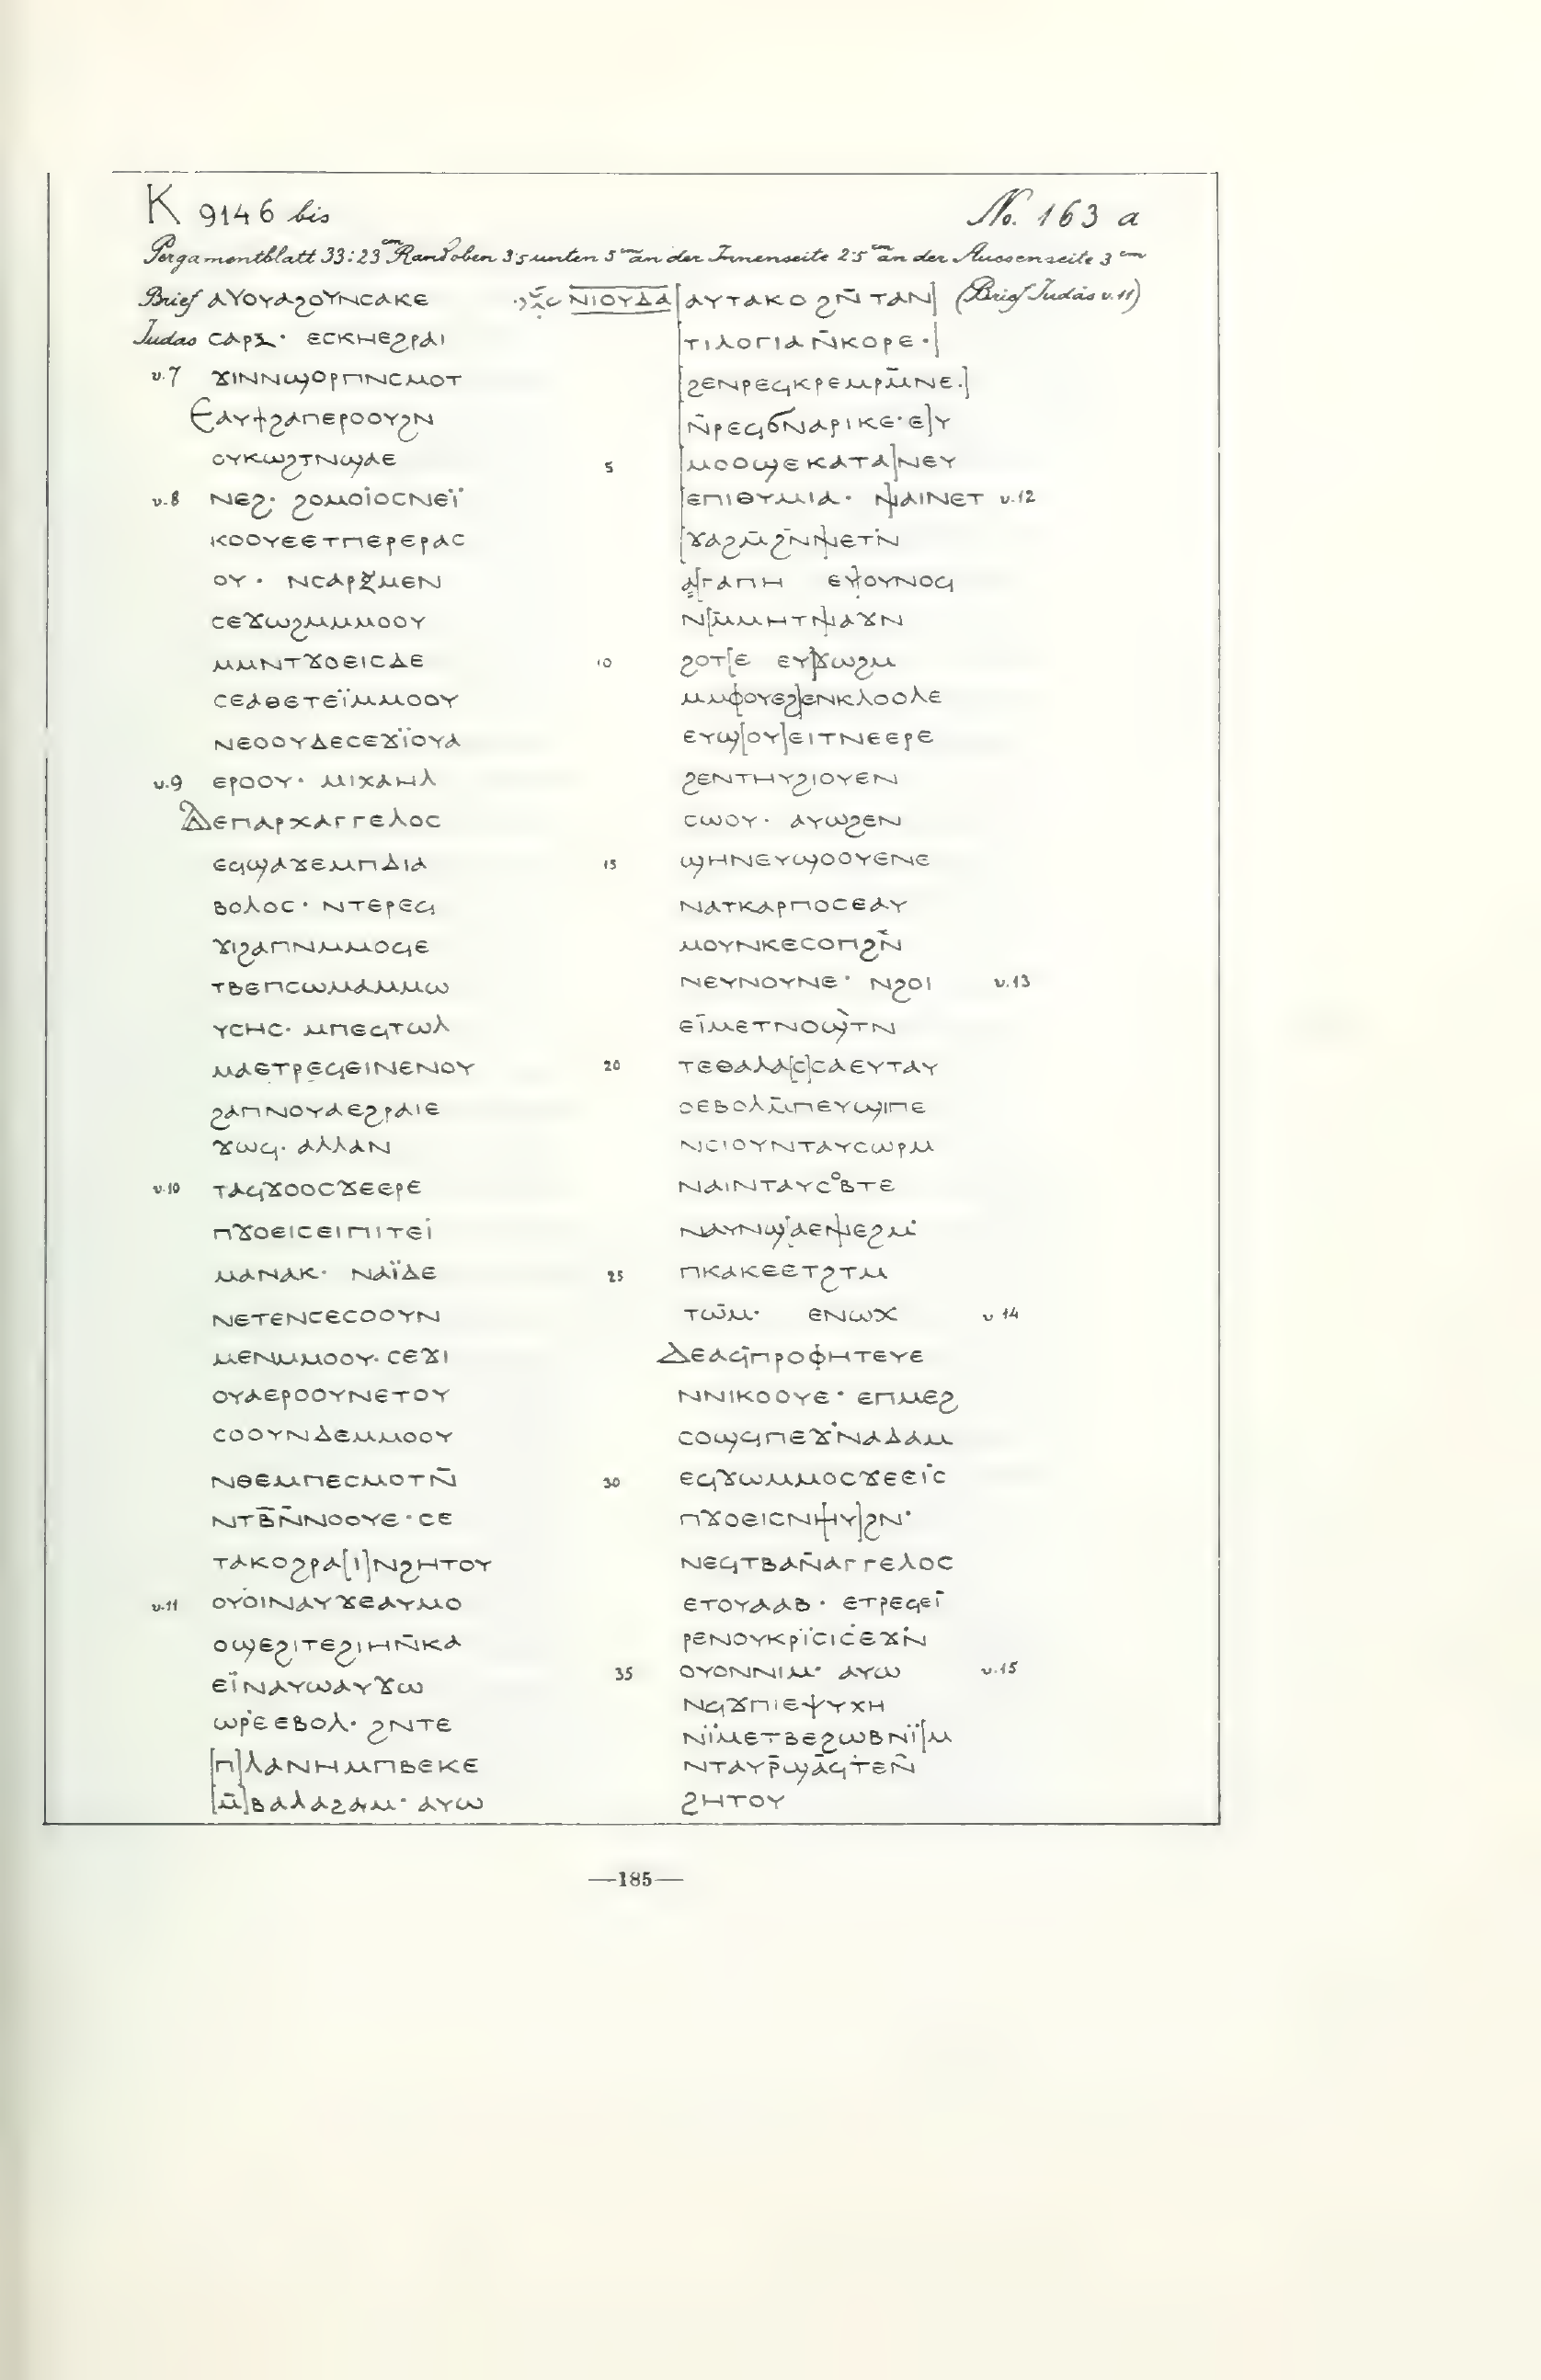 K 9146 bis
No. 163 a
Pergamentblatt 33:23 cm Rand oben 3·5 unten 5 cm an der Innenseite 2·5 cm an der Aussenseite 3 cm
Brief ⲁⲩⲟⲩⲁϩⲟⲩⲛⲥⲁⲕⲉ
Judas ⲥⲁⲣⲝ· ⲉⲥⲕⲏⲉϩⲣⲁⲓ
v.7 ϫⲓⲛⲛϣⲟⲣⲡⲛⲥⲙⲟⲧ
ⲉⲁⲩϯϩⲁⲡⲉⲣⲟⲟⲩϩⲛ
ⲟⲩⲕⲱϩⲧⲛϣⲁⲉ
v.8 ⲛⲉϩ· ϩⲟⲙⲟⲓ̈ⲟⲥⲛⲉⲓ̈
ⲕⲟⲟⲩⲉⲉⲧⲡⲉⲣⲉⲣⲁⲥ
ⲟⲩ· ⲛⲥⲁⲣⲝⲙⲉⲛ
ⲥⲉϫⲱϩⲙⲙⲙⲟⲟⲩ
ⲙⲙⲛⲧϫⲟⲉⲓⲥⲇⲉ
ⲥⲉⲁⲑⲉⲧⲉⲓ̈ⲙⲙⲟⲟⲩ
ⲛⲉⲟⲟⲩⲇⲉⲥⲉϫⲓ̈ⲟⲩⲁ
v.9 ⲉⲣⲟⲟⲩ· ⲙⲓⲭⲁⲏⲗ
ⲇⲉⲡⲁⲣⲭⲁⲅⲅⲉⲗⲟⲥ
ⲉϥϣⲁϫⲉⲙⲡⲇⲓⲁ
ⲃⲟⲗⲟⲥ· ⲛⲧⲉⲣⲉϥ
ϫⲓϩⲁⲡⲛⲙⲙⲟϥⲉ
ⲧⲃⲉⲡⲥⲱⲙⲁⲙⲙⲱ
ⲩⲥⲏⲥ· ⲙⲡⲉϥⲧⲱⲗ
ⲙⲁⲉⲧⲣⲉϥⲉⲓⲛⲉⲛⲟⲩ
ϩⲁⲡⲛⲟⲩⲁⲉϩⲣⲁⲓⲉ
ϫⲱϥ· ⲁⲗⲗⲁⲛ
v.10 ⲧⲁϥϫⲟⲟⲥϫⲉⲉⲣⲉ
ⲡϫⲟⲉⲓⲥⲉⲓⲡⲓⲧⲉⲓ
ⲙⲁⲛⲁⲕ· ⲛⲁⲓ̈ⲇⲉ
ⲛⲉⲧⲉⲛⲥⲉⲥⲟⲟⲩⲛ
ⲙⲉⲛⲙⲙⲟⲟⲩ· ⲥⲉϫⲓ
ⲟⲩⲁⲉⲣⲟⲟⲩⲛⲉⲧⲟⲩ
ⲥⲟⲟⲩⲛⲇⲉⲙⲙⲟⲟⲩ
ⲛⲑⲉⲙⲡⲉⲥⲙⲟⲧⲛ̄
ⲛⲧⲃ̄ⲛ̄ⲛⲟⲟⲩⲉ· ⲥⲉ
ⲧⲁⲕⲟϩⲣⲁ[ⲓ]ⲛϩⲏⲧⲟⲩ
v.11 ⲟⲩⲟⲓⲛⲁⲩϫⲉⲁⲩⲙⲟ
ⲟϣⲉϩⲓⲧⲉϩⲓⲏⲛ̄ⲕⲁ
ⲉⲓ̈ⲛⲁⲩⲱⲁⲩϫⲱ
ⲱⲣⲉⲉⲃⲟⲗ· ϩⲛⲧⲉ
[ⲡ]ⲗⲁⲛⲏⲙⲡⲃⲉⲕⲉ
[ⲙ̄]ⲃⲁⲗⲁϩⲁⲙ· ⲁⲩⲱ
ⲛⲓⲟⲩⲇⲁ [ⲁⲩⲧⲁⲕⲟ ϩⲛ̄ ⲧⲁⲛ] (Brief Judas v.11)
[ⲧⲓⲗⲟⲅⲓⲁⲛ̄ⲕⲟⲣⲉ·]
[ϩⲉⲛⲣⲉϥⲕⲣⲉⲙⲣⲙ̄ⲛⲉ·]
[ⲛ̄ⲣⲉϥϭⲛⲁⲣⲓⲕⲉ· ⲉ]ⲩ
5 [ⲙⲟⲟϣⲉⲕⲁⲧⲁ]ⲛⲉⲩ
[ⲉⲡⲓⲑⲩⲙⲓⲁ· ⲛ]ⲁⲓⲛⲉⲧ v.12
[ϫⲁϩⲙ̄ϩⲛ̄ⲛ]ⲉⲧⲛ
ⲁ[ⲅⲁⲡⲏ ⲉⲩ]ⲟⲩⲛⲟϥ
ⲛ[ⲙ̄ⲙⲏⲧⲛ]ⲁϫⲛ
10 ϩⲟⲧ[ⲉ ⲉⲩ]ϫⲱϩⲙ
ⲙⲙⲟⲟⲩϩⲉⲛⲕⲗⲟⲟⲗⲉ
ⲉⲩϣ[ⲟⲩ]ⲉⲓⲧⲛⲉⲉⲣⲉ
ϩⲉⲛⲧⲏⲩϩⲓⲟⲩⲉⲛ
ⲥⲱⲟⲩ· ⲁⲩⲱϩⲉⲛ
15 ϣⲏⲛⲉⲩϣⲟⲟⲩⲉⲛⲉ
ⲛⲁⲧⲕⲁⲣⲡⲟⲥⲉⲁⲩ
ⲙⲟⲩⲛⲕⲉⲥⲟⲡϩⲛ̄
ⲛⲉⲩⲛⲟⲩⲛⲉ· ⲛϩⲟⲓ v.13
ⲉⲓ̄ⲙⲉⲧⲛⲟϣ̀ⲧⲛ
20 ⲧⲉⲑⲁⲗⲁ[ⲥ]ⲥⲁⲉⲩⲧⲁⲩ
ⲟⲉⲃⲟⲗⲙ̄ⲡⲉⲩϣⲓⲡⲉ
ⲛⲥⲓⲟⲩⲛⲧⲁⲩⲥⲱⲣⲙ
ⲛⲁⲓⲛⲧⲁⲩⲥⲟⲃⲧⲉ
ⲛⲁⲩⲛϣⲁⲉⲛⲉϩⲙ
25 ⲡⲕⲁⲕⲉⲉⲧϩⲧⲙ
ⲧⲱ̄ⲙ· ⲉⲛⲱⲭ v 14
ⲇⲉⲁϥⲡⲣⲟⲫⲏⲧⲉⲩⲉ
ⲛⲛⲓⲕⲟⲟⲩⲉ· ⲉⲡⲙⲉϩ
ⲥⲟϣϥⲡⲉϫⲓⲛⲁⲇⲁⲙ
30 ⲉϥϫⲱⲙⲙⲟⲥϫⲉⲉⲓⲥ
ⲡϫⲟⲉⲓⲥⲛⲏ[ⲩ]ϩⲛ·
ⲛⲉϥⲧⲃⲁⲛ̄ⲁⲅⲅⲉⲗⲟⲥ
ⲉⲧⲟⲩⲁⲁⲃ· ⲉⲧⲣⲉϥⲉⲓ̄
ⲣⲉⲛⲟⲩⲕⲣⲓ̈ⲥⲓⲥⲉϫⲛ
35 ⲟⲩⲟⲛⲛⲓⲙ· ⲁⲩⲱ v.15
ⲛϥϫⲡⲓⲉⲯⲩⲭⲏ
ⲛⲓ̈ⲙⲉⲧⲃⲉϩⲱⲃⲛⲓ̈[ⲙ
ⲛⲧⲁⲩⲣ̄ϣⲁ̄ϥⲧⲉⲛ̄
ϩⲏⲧⲟⲩ
—185—